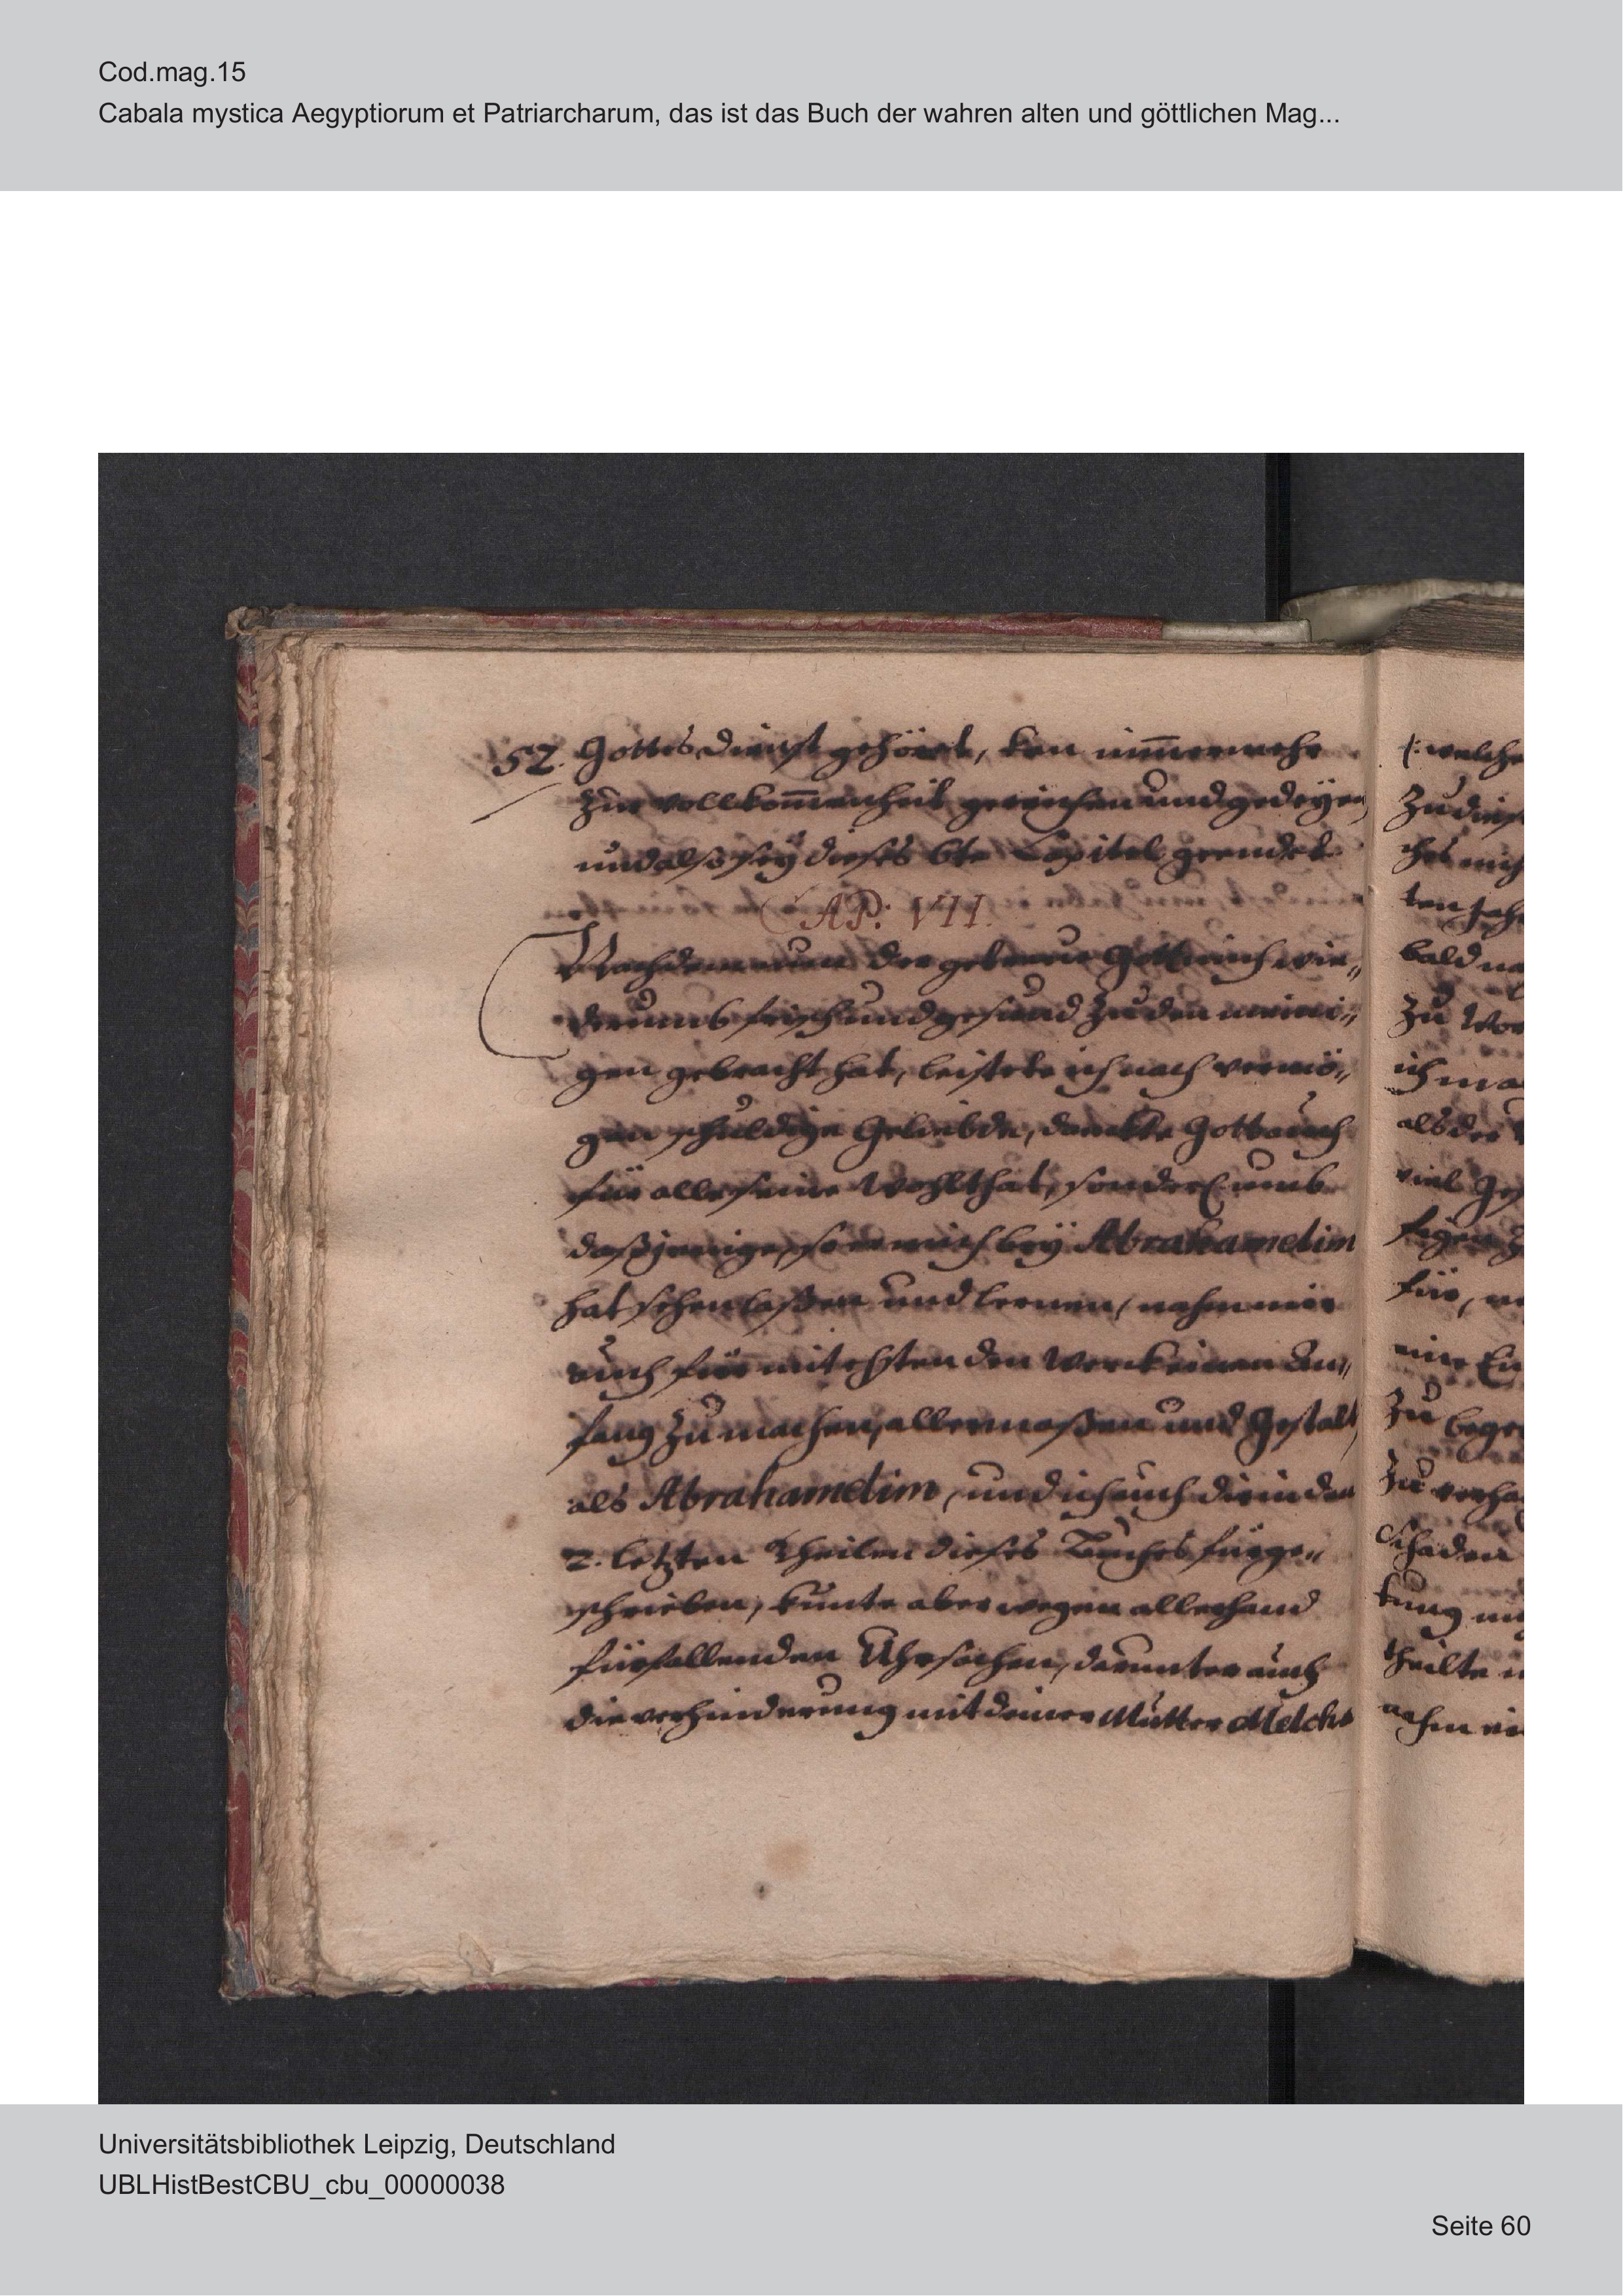 Cod.mag.15
Cabala mystica Aegyptiorum et Patriarcharum, das ist das Buch der wahren alten und göttlichen Mag...
52. Gottes dienst gehöret, kan nim̅ermehr
Zur vollkom̅enheit gereichen und gedeÿen,
und also seÿ dieses 6te Capitel geendet
CAP: VII.
Nachdem nun der getreue Gott mich wie„
derumb frisch und gesund zu den meini„
gen gebracht hat, leistete ich nach vermö„
gen schuldige Geliebde, danckte Gott auch
für alle seine Wohlthat, sonderl umb
daßjenige, so er mich beÿ Abrahamelim
hat sehen laßen und lernen, nahm mir
auch für mit ehsten den Werck einen An„
fang zu machen, allermaßen und Gestalt,
als Abrahamelim, und ich auch dir in den
2. letzten Theilen dieses Buches fürge„
schrieben, kunte aber wegen allerhand
fürfallenden Uhrsachen, darunter auch
die verhinderung mit deiner Mutter Melcha
(: welche
Zu dies
ches mich
ten Jah
bald na
Zu Wor
ich ma
als der
viel Ges
für,
eine
Zu bege
Zu verha
Schaden
kung
theilte
nahm
Universitätsbibliothek Leipzig, Deutschland
UBLHistBestCBU_cbu_00000038
Seite 60